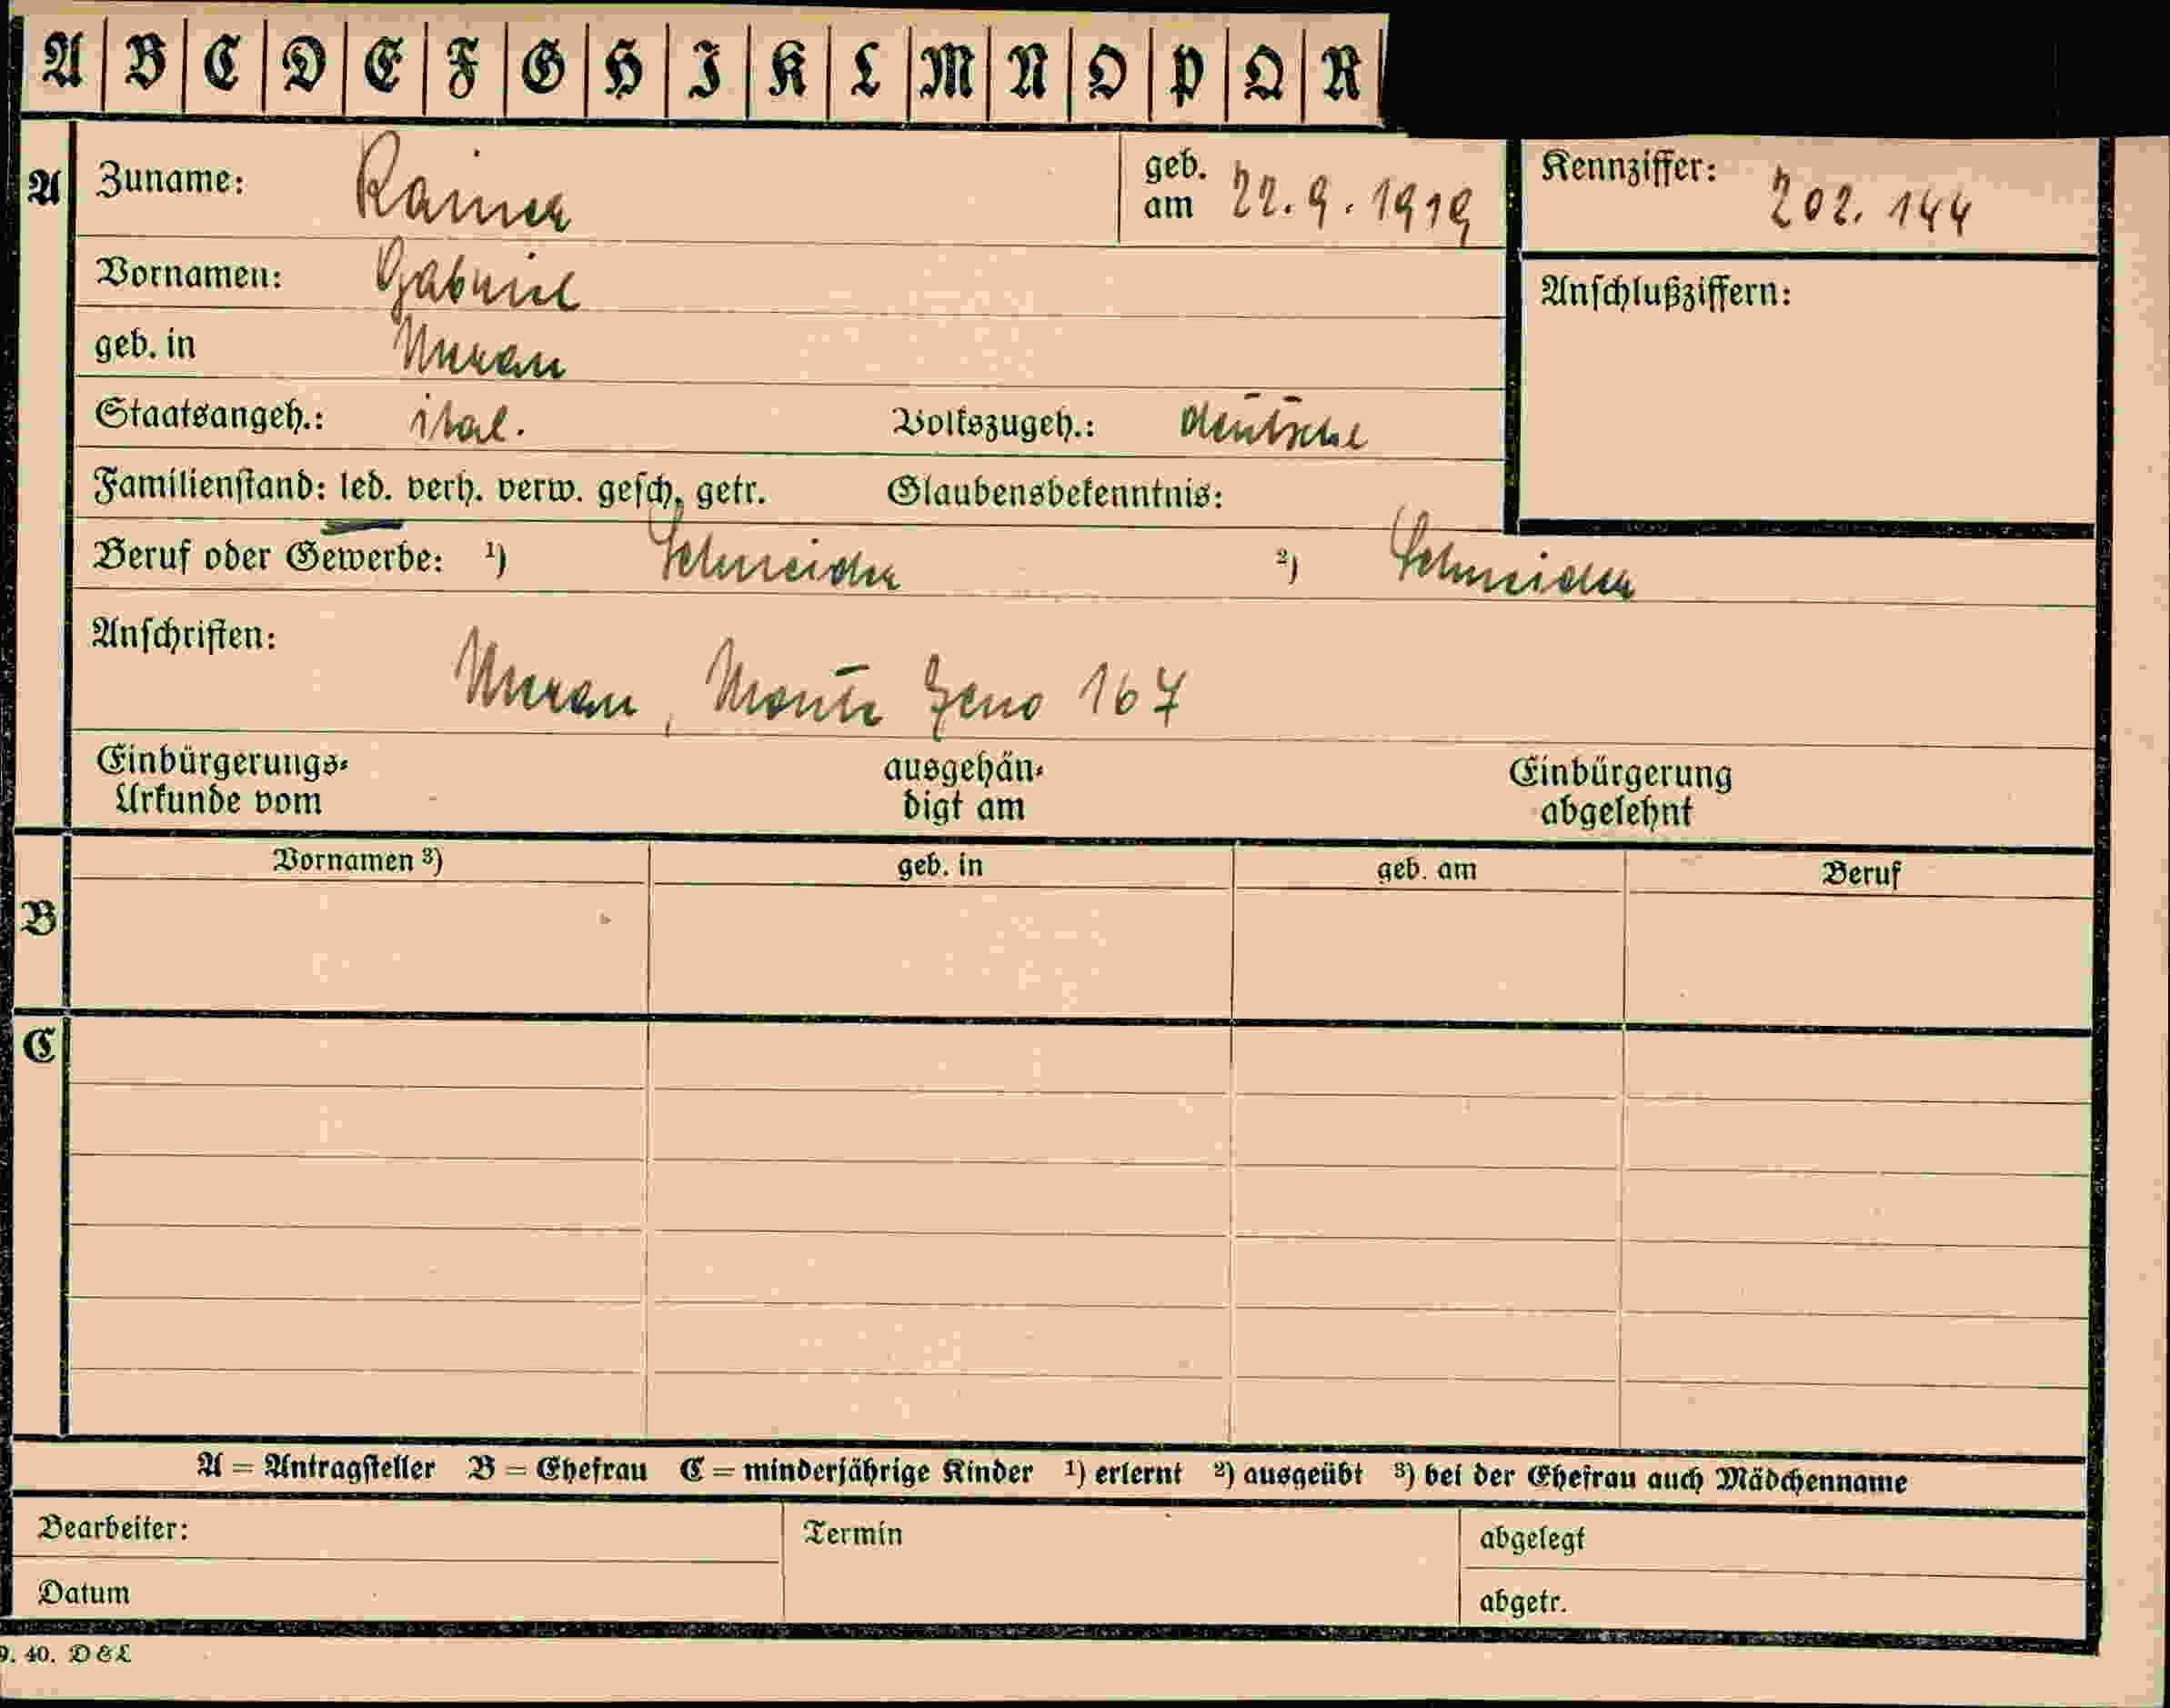 A B C D E F G H I K L M N O P Q R
A Zuname: Rainer geb. am 22.9.1919 Kennziffer: 202.144
Vornamen: Gabriel Anschlußziffern:
geb. in Meran
Staatsangeh.: ital. Volkszugeh.: deutsche
Familienstand: led. verh. verw. gesch. getr. Glaubensbekenntnis:
Beruf oder Gewerbe: ¹) Schneider ²) Schneider
Anschriften:
Meran, Monte Zeno 167
Einbürgerungs- ausgehän- Einbürgerung
Urkunde vom digt am abgelehnt
B Vornamen ³) geb. in geb. am Beruf
C
A = Antragsteller B = Ehefrau C = minderjährige Kinder ¹) erlernt ²) ausgeübt ³) bei der Ehefrau auch Mädchenname
Bearbeiter: Termin abgelegt
Datum abgetr.
9. 40. D & L